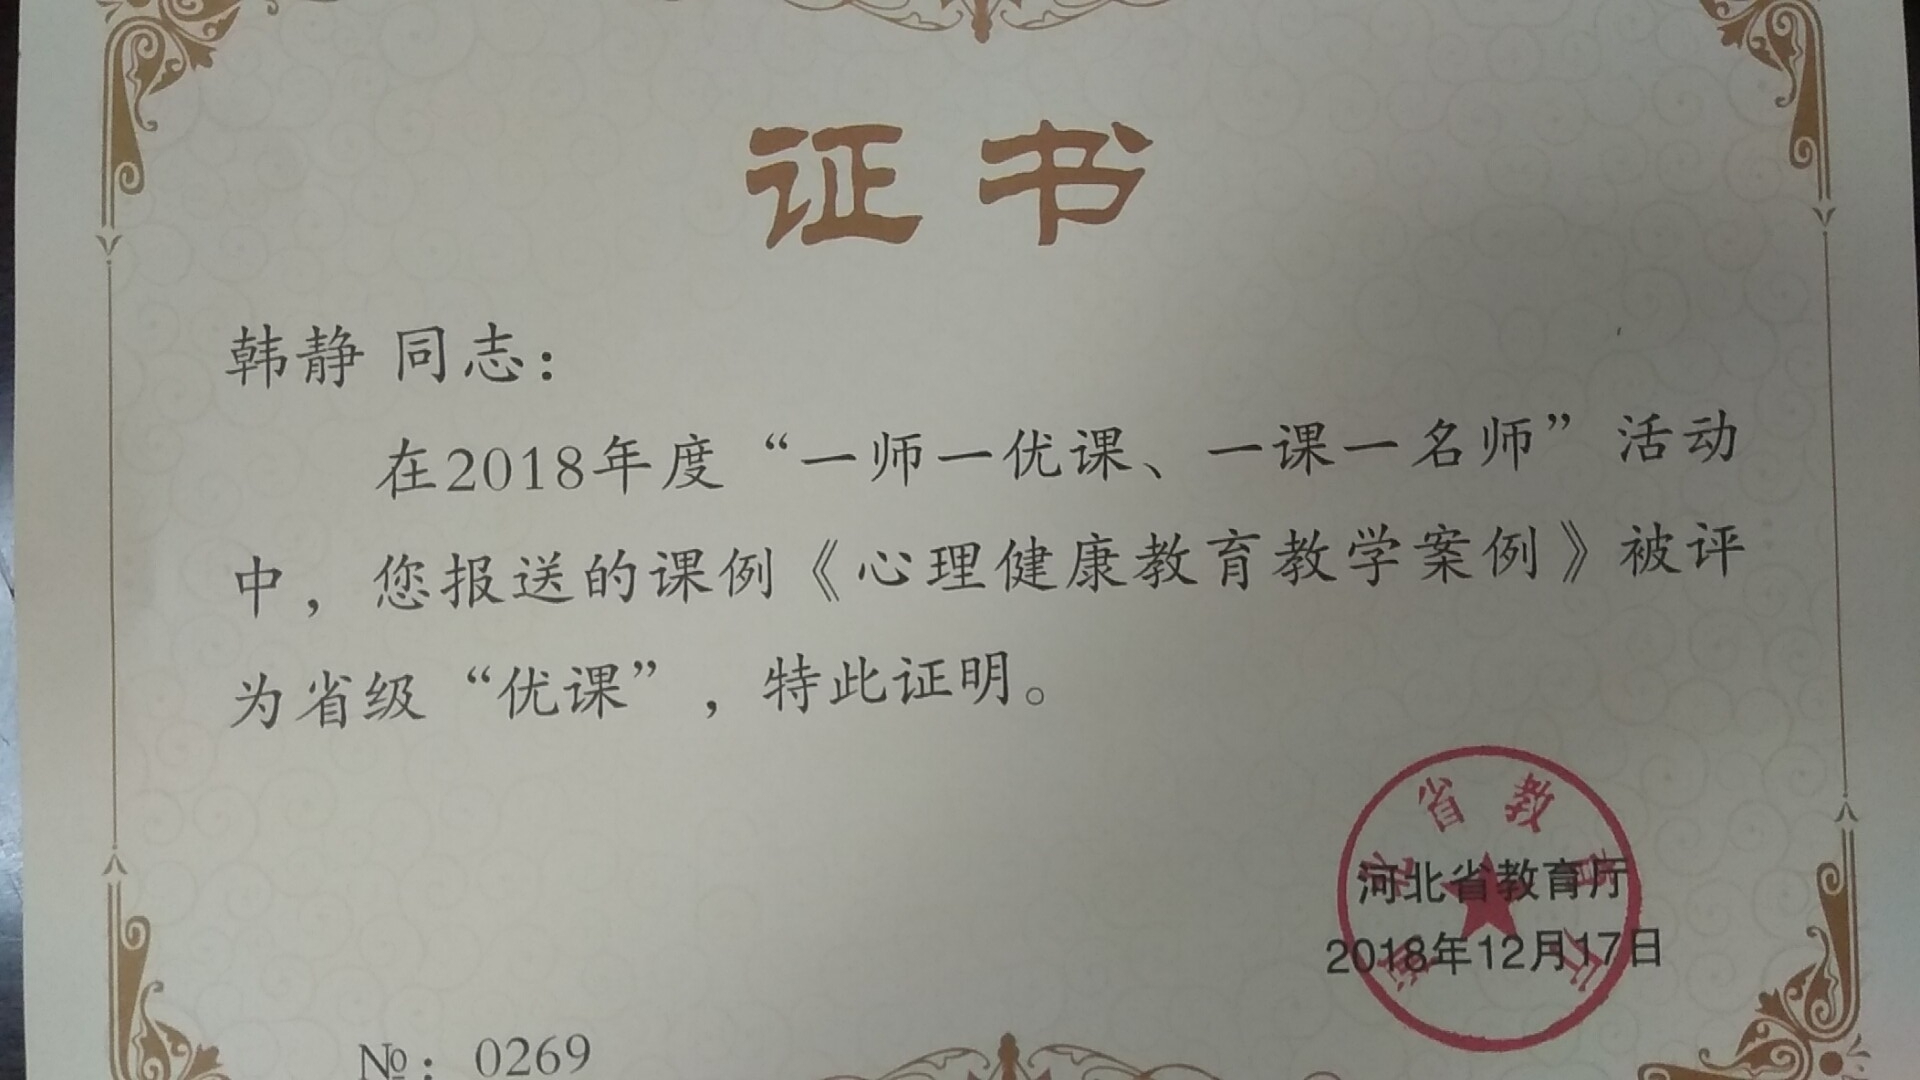 证书
韩静 同志：
在2018年度“一师一优课、一课一名师”活动
中，您报送的课例《心理健康教育教学案例》被评
为省级“优课”，特此证明。
河北省教育厅
河北省教育厅
2018年12月17日
№：0269